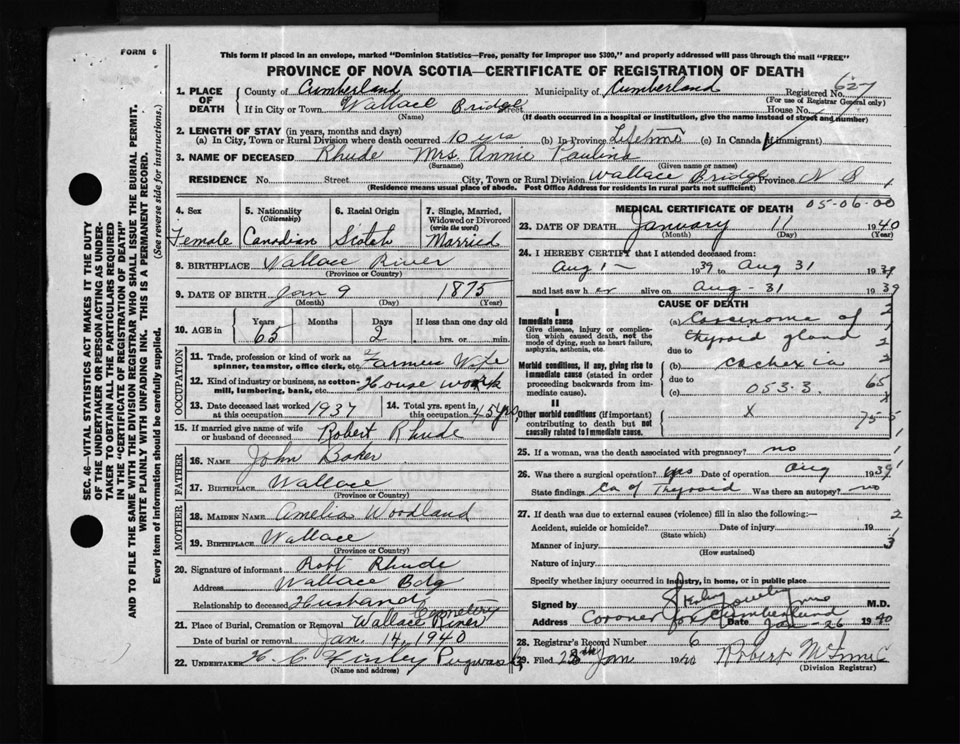 FORM 6
This form if placed in an envelope, marked "Dominion Statistics—Free, penalty for improper use $300," and properly addressed will pass through the mail "FREE"
PROVINCE OF NOVA SCOTIA—CERTIFICATE OF REGISTRATION OF DEATH
1. PLACE OF DEATH
County of Cumberland Municipality of Cumberland Registered No. 627
(For use of Registrar General only)
If in City or Town Wallace Bridge House No.
(Name) (If death occurred in a hospital or institution, give the name instead of street and number)
2. LENGTH OF STAY (in years, months and days)
(a) In City, Town or Rural Division where death occurred 10 yrs (b) In Province Lifetime (c) In Canada (if immigrant)
3. NAME OF DECEASED Rhude Mrs. Annie Paulina
(Surname) (Given name or names)
RESIDENCE No. Street City, Town or Rural Division Wallace Bridge Province N S
(Residence means usual place of abode. Post Office Address for residents in rural parts not sufficient)
4. Sex Female
5. Nationality (Citizenship) Canadian
6. Racial Origin Scotch
7. Single, Married, Widowed or Divorced (write the word) Married
8. BIRTHPLACE Wallace River
(Province or Country)
9. DATE OF BIRTH Jan 9 1875
(Month) (Day) (Year)
10. AGE in Years Months Days If less than one day old
65 2 hrs. or min.
OCCUPATION
11. Trade, profession or kind of work as spinner, teamster, office clerk, etc. Farmers Wife
12. Kind of industry or business, as cotton-mill, lumbering, bank, etc. House work
13. Date deceased last worked at this occupation 1937
14. Total yrs. spent in this occupation 45 yrs
15. If married give name of wife or husband of deceased Robert Rhude
FATHER
16. Name John Baker
17. Birthplace Wallace
(Province or Country)
MOTHER
18. Maiden Name Amelia Woodland
19. Birthplace Wallace
(Province or Country)
20. Signature of informant Robt Rhude
Address Wallace Bdg
Relationship to deceased Husband
21. Place of Burial, Cremation or Removal Wallace River Cemetery
Date of burial or removal Jan. 14, 1940
22. Undertaker H. C. Pugwash
(Name and address)
MEDICAL CERTIFICATE OF DEATH 05-06-00
23. DATE OF DEATH January 11 1940
(Month) (Day) (Year)
24. I HEREBY CERTIFY that I attended deceased from:
Aug 1 - 1939 to Aug 31 1939
and last saw her alive on Aug - 31 1939
CAUSE OF DEATH
I
Immediate cause
Give disease, injury or complication which caused death, not the mode of dying, such as heart failure, asphyxia, asthenia, etc.
(a) Carcinoma of thyroid gland
due to
Morbid conditions, if any, giving rise to immediate cause (stated in order proceeding backwards from immediate cause).
(b) cachexia
due to
(c) 053.3. 65
II
Other morbid conditions (if important) contributing to death but not causally related to immediate cause.
x 75
25. If a woman, was the death associated with pregnancy? no
26. Was there a surgical operation? yes Date of operation Aug 1939
State findings Ca of Thyroid Was there an autopsy? no
27. If death was due to external causes (violence) fill in also the following:—
Accident, suicide or homicide? Date of injury 19
(State which)
Manner of injury
(How sustained)
Nature of injury
Specify whether injury occurred in industry, in home, or in public place
Signed by M.D.
Address Coroner for Cumberland Date Jan - 26 1940
28. Registrar's Record Number 6
29. Filed Jan 1940 Robert
(Division Registrar)
SEC. 46—VITAL STATISTICS ACT MAKES IT THE DUTY
OF THE UNDERTAKER OR PERSON ACTING AS UNDER-
TAKER TO OBTAIN ALL THE PARTICULARS REQUIRED
IN THE "CERTIFICATE OF REGISTRATION OF DEATH"
AND TO FILE THE SAME WITH THE DIVISION REGISTRAR WHO SHALL ISSUE THE BURIAL PERMIT.
WRITE PLAINLY WITH UNFADING INK. THIS IS A PERMANENT RECORD.
Every item of information should be carefully supplied. (See reverse side for instructions.)